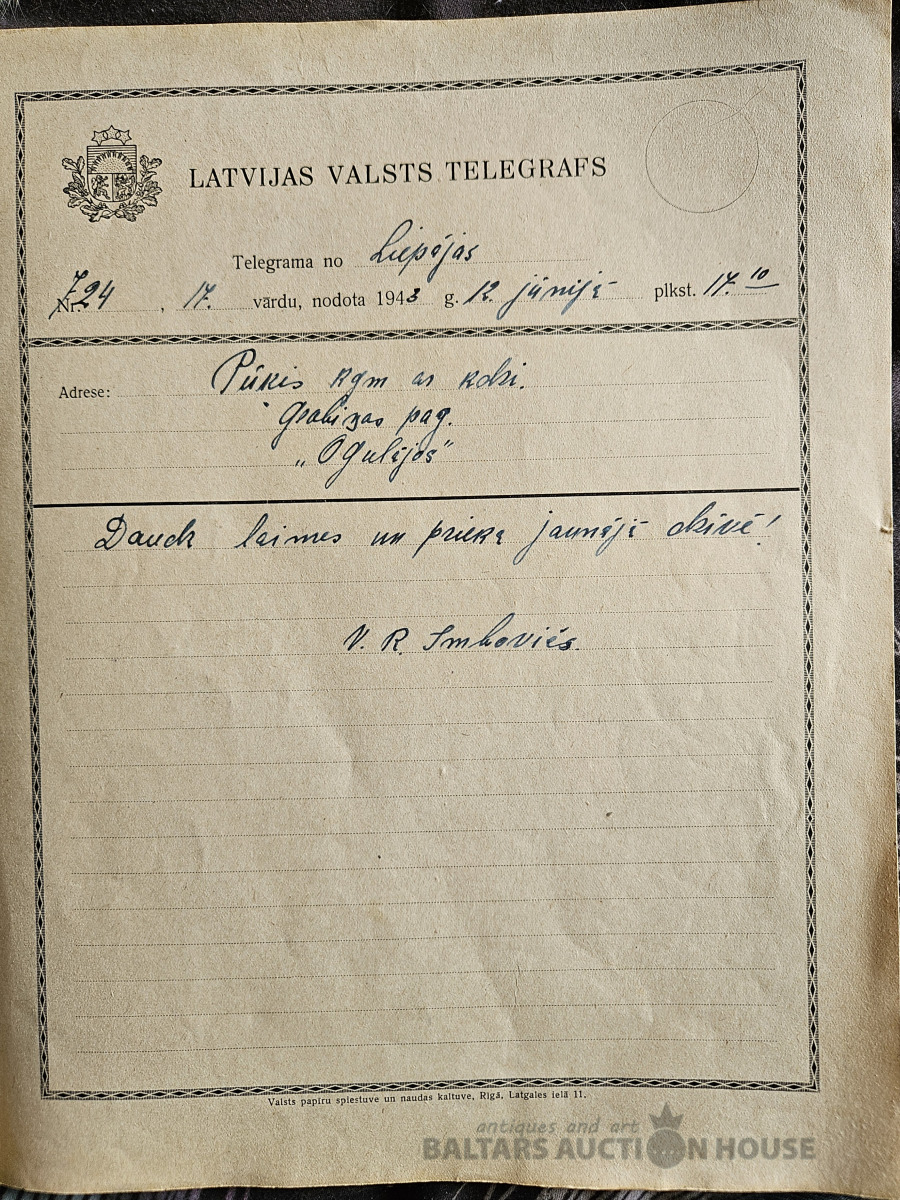 LATVIJAS VALSTS TELEGRAFS
Telegrama no Liepājas
Nr. 724, 17. vārdu, nodota 1943 g. 12. jūnijā plkst. 17.10
Adrese: Pūķis kgm ar kdzi.
Grobiņas pag.
„Ogulājos"
Daudz laimes un prieka jaunājā dzīvē!
V. R.
Valsts papīru spiestuve un naudas kaltuve, Rīgā, Latgales ielā 11.
antiques and art
BALTARS AUCTION HOUSE